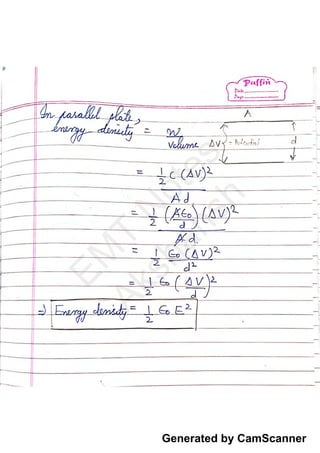 Puffin
Date
Page
In parallel plate,
energy density = W / Volume
A
ΔV = Potential
d
= 1/2 C (ΔV)² / Ad
= 1/2 (Aε₀/d) (ΔV)² / Ad
= 1/2 ε₀ (ΔV)² / d²
= 1/2 ε₀ (ΔV/d)²
⇒ Energy density = 1/2 ε₀ E²
EMT Notes
Generated by CamScanner